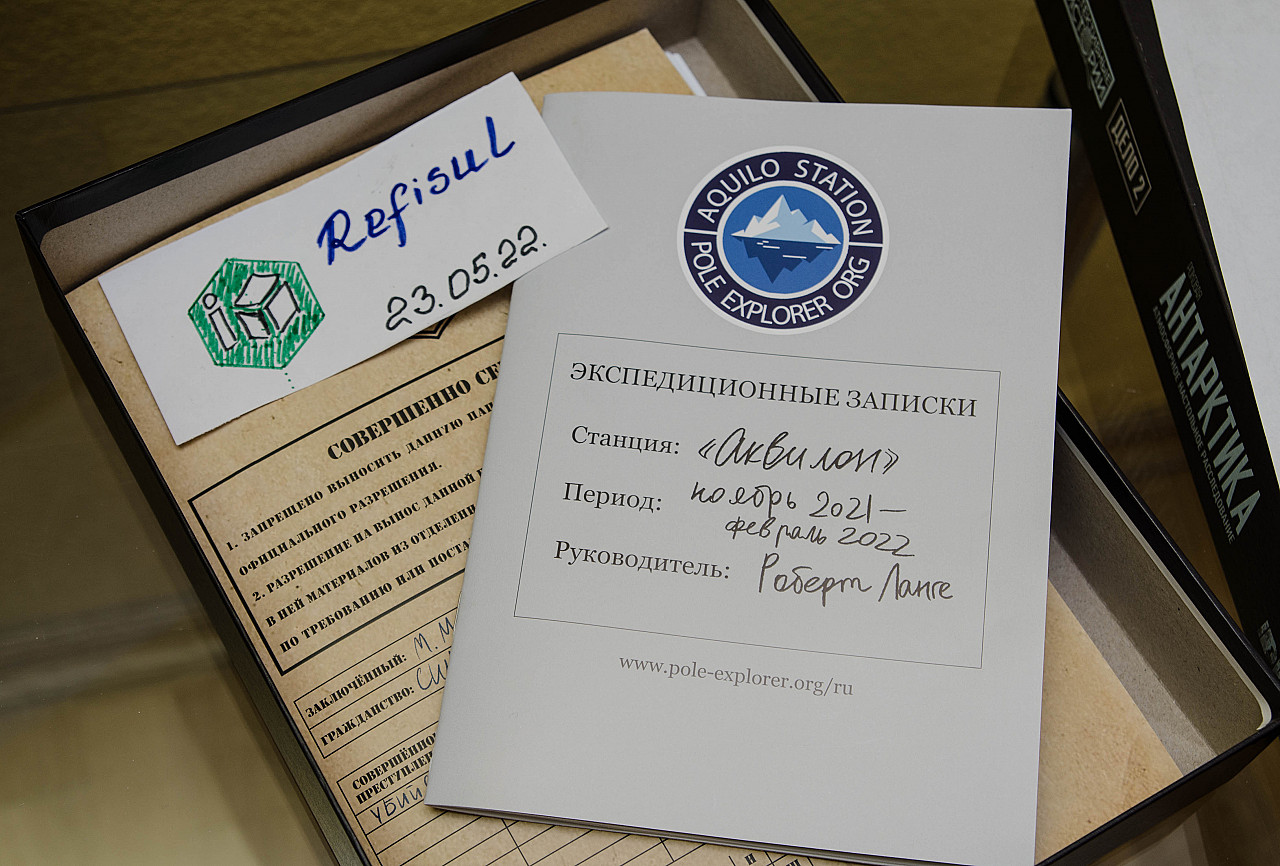 Refisul
23.05.22.
AQUILO STATION
POLE EXPLORER ORG
ЭКСПЕДИЦИОННЫЕ ЗАПИСКИ
Станция: «Аквилон»
Период: ноябрь 2021–
февраль 2022
Руководитель: Роберт Ланге
www.pole-explorer.org/ru
СОВЕРШЕННО СЕ
1. ЗАПРЕЩЕНО ВЫНОСИТЬ ДАННУЮ ПАП
ОФИЦИАЛЬНОГО РАЗРЕШЕНИЯ.
2. РАЗРЕШЕНИЕ НА ВЫНОС ДАННОЙ
В НЕЙ МАТЕРИАЛОВ ИЗ ОТДЕЛЕНИ
ПО ТРЕБОВАНИЮ ИЛИ ПОСТА
ЗАКЛЮЧЁННЫЙ: М. М
ГРАЖДАНСТВО: СИ
СОВЕРШЁННО
ПРЕСТУПЛЕ
УБИЙ
ДЕЛО 2
АНТАРКТИКА
АТМОСФЕРНОЕ НАСТОЛЬНОЕ РАССЛЕДОВАНИЕ